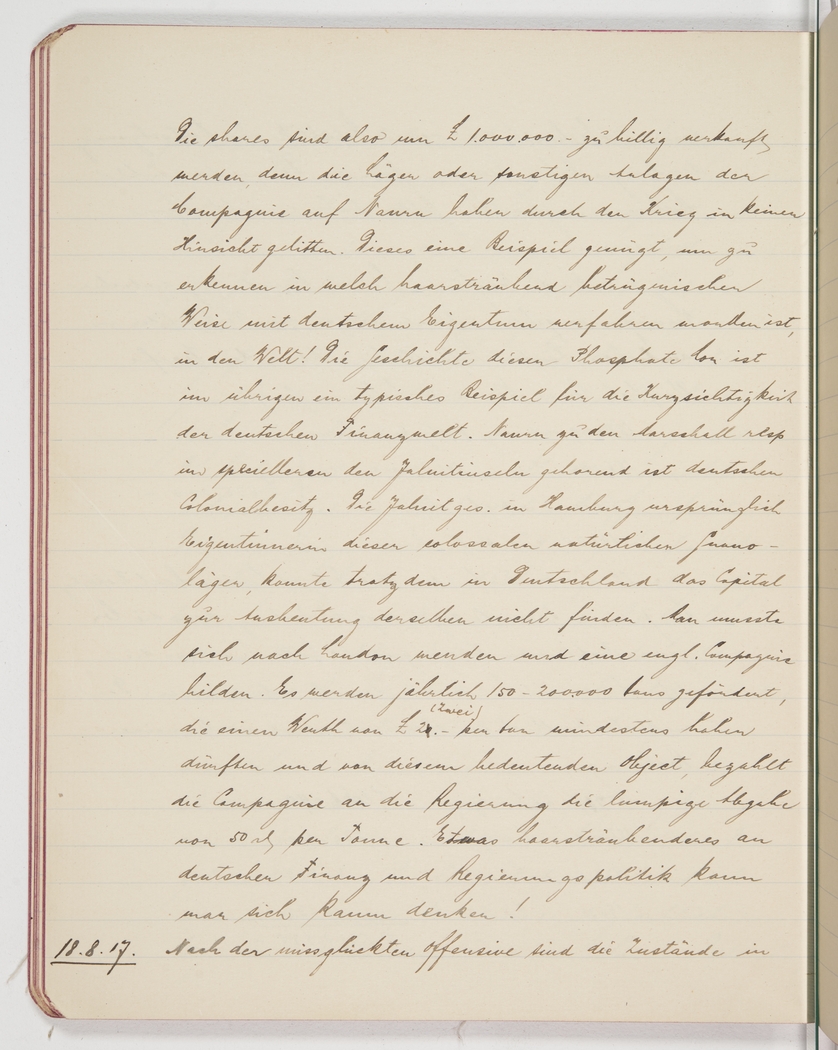 Die shares sind also um £ 1.000.000.- zu billig verkauft
werden, denn die Läger oder sonstigen Anlagen der
Compagnie auf Nauru haben durch den Krieg in keiner
Hinsicht gelitten. Dieses eine Beispiel genügt, um zu
erkennen in welch haarsträubend betrügerischen
Weise mit deutschem Eigentum verfahren worden ist,
in der Welt! Die Geschichte dieser Phosphate Co. ist
im übrigen ein typisches Beispiel für die Kurzsichtigkeit
der deutschen Finanzwelt. Nauru zu den Marschall resp
im speciellerem den Jaluitinseln gehorend ist deutscher
Colonialbesitz. Die Jaluit ges. in Hamburg ursprünglich
Eigentümerin dieser colossalen natürlichen Guano-
läger, konnte trotzdem in Deutschland das Capital
zur Ausbeutung derselben nicht finden. Man musste
sich nach London wenden und eine engl. Compagnie
bilden. Es werden jährlich 150-200.000 tons gefördert,
die einen Werth von £ 2.- (zwei) per ton mindestens haben
dürften und von diesem bedeutenden Object, bezahlt
die Compagnie an die Regierung die lumpige Abgabe
von 50 per Tonne. Etwas haarsträubenderes an
deutscher Finanz und Regierungspolitik kann
man sich kaum denken!
18.8.17. Nach der missglückten Offensive sind die Zustände in